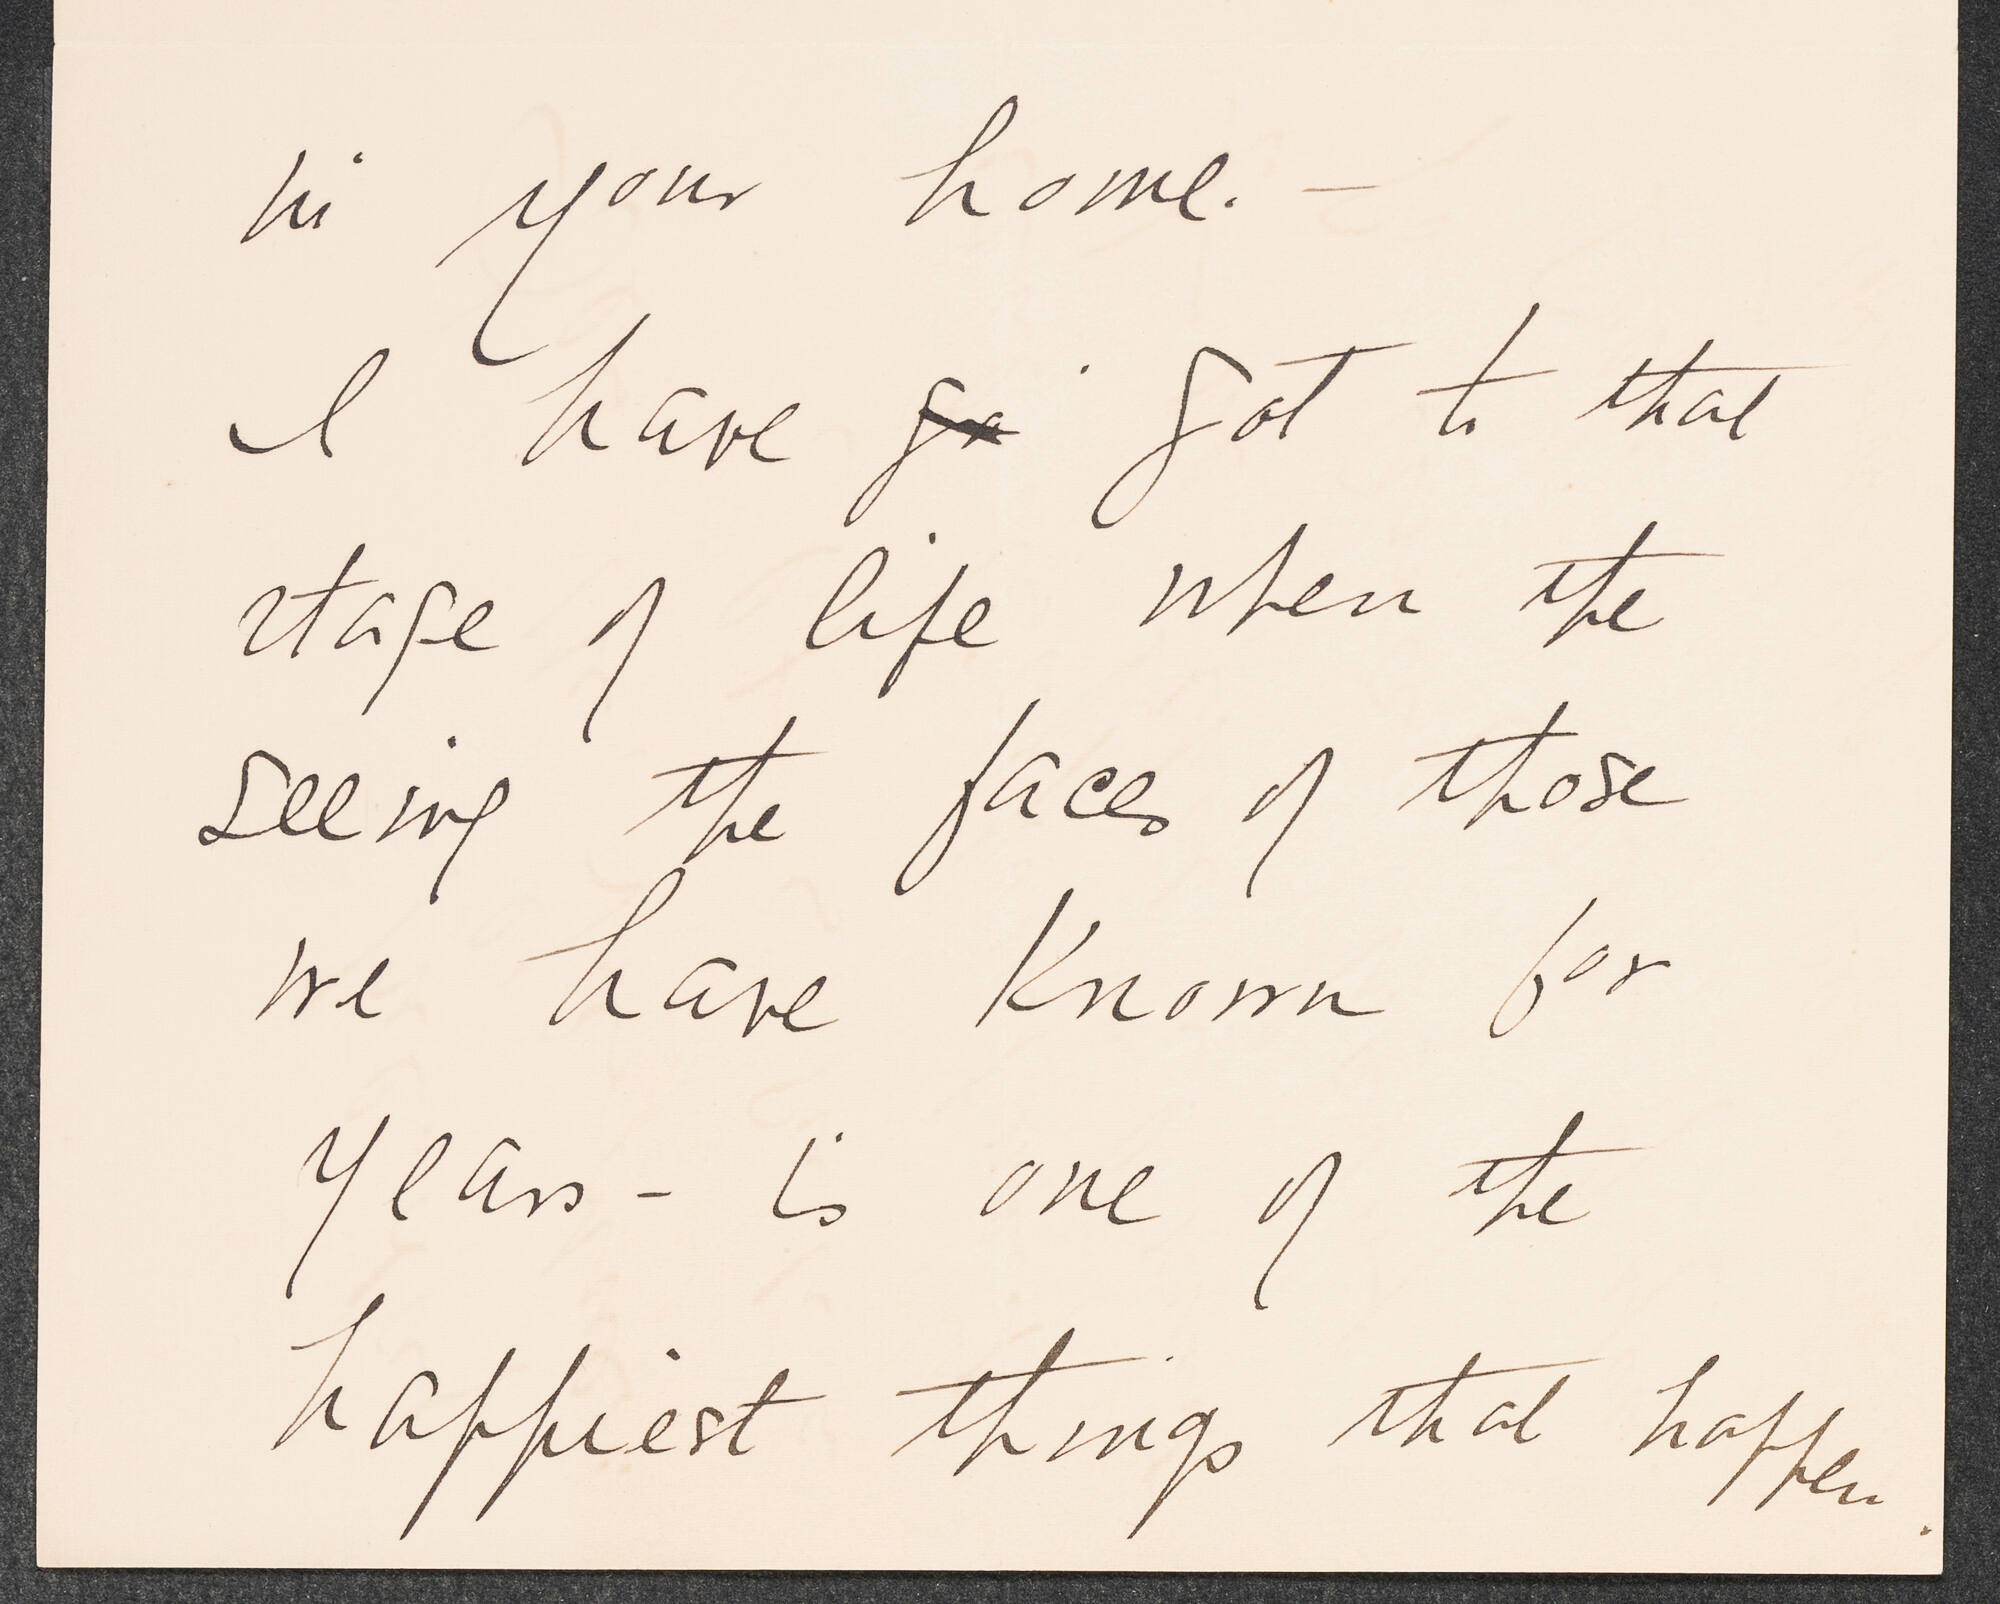 in your home. —
I have go got to that
stage of life when the
seeing the faces of those
we have known for
years - is one of the
happiest things that happen.